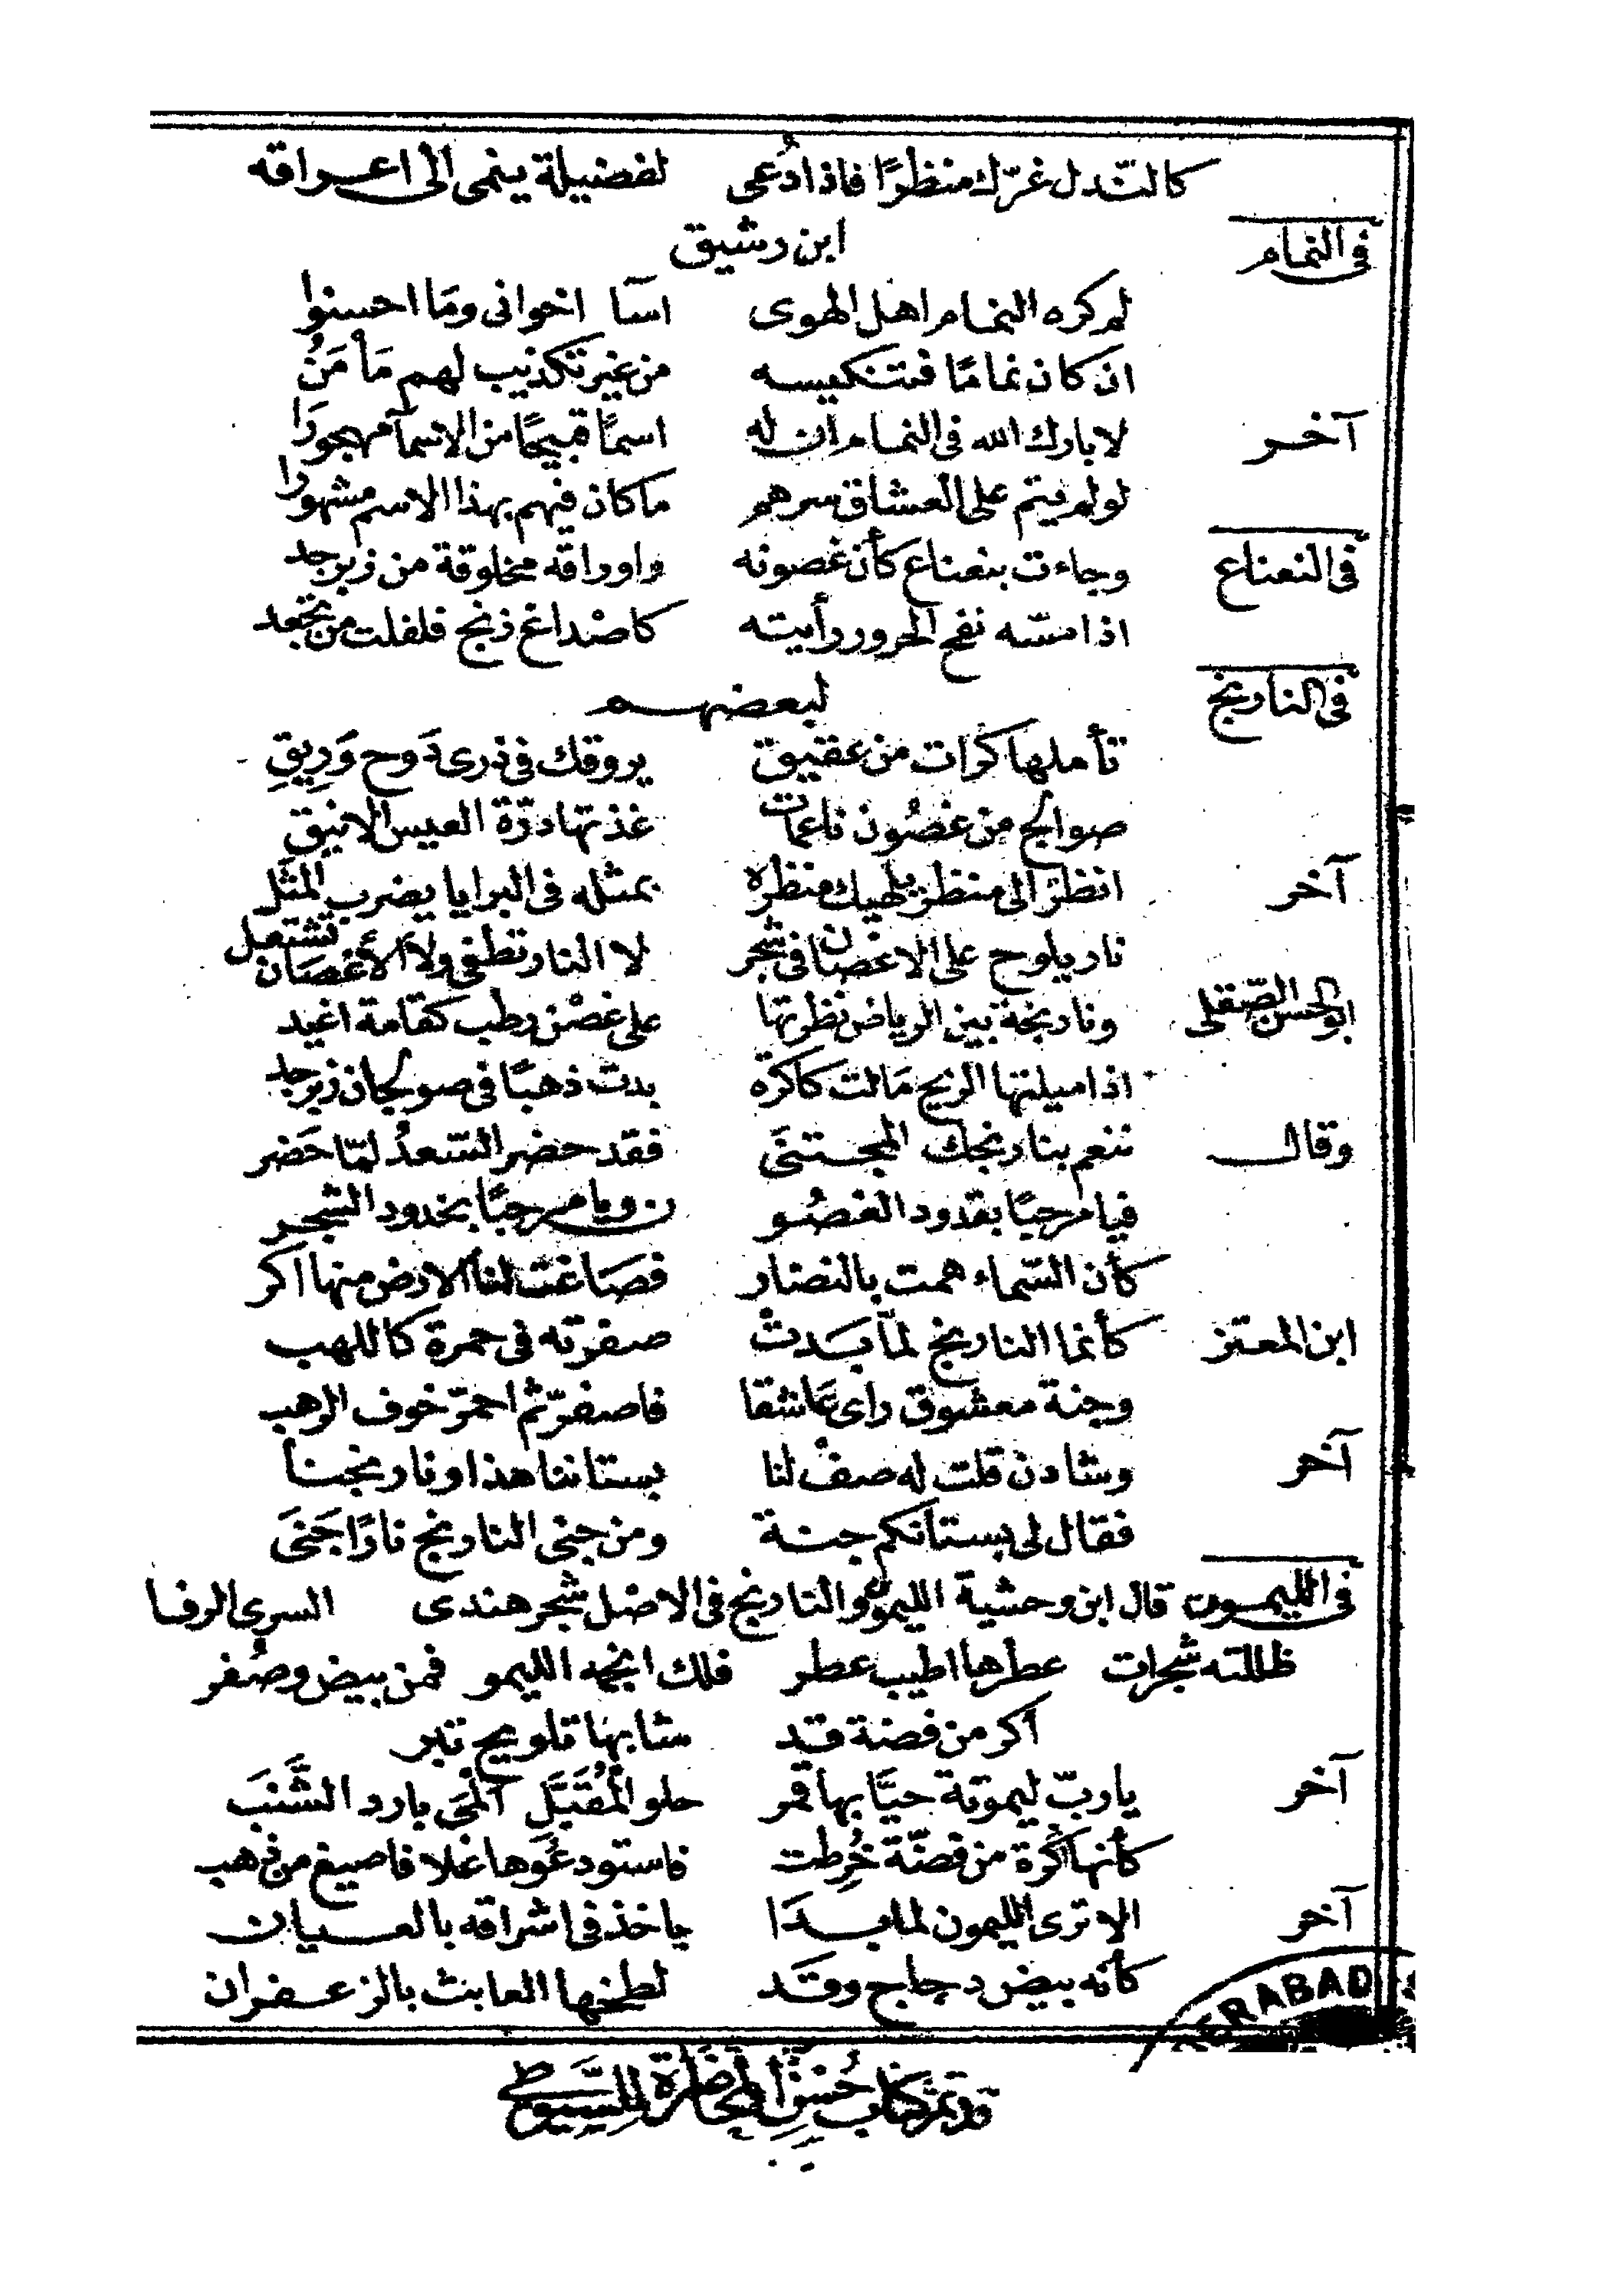 كالنّدل غرّك منظرًا فاذا دُعى لفضيلة ينمى الى اعراقه
فى النمام ابن رشيق
لم كره النمام اهل الهوى اسآ اخوانى ومَا احسنوا
ان كان نمامًا فتنكيسه من غير تكذيب لهم مَأمَنُ
آخر لا بارك الله فى النمام ان له اسمًا قبيحًا من الاسمآ مهجورًا
لو لم ينم على العشاق سرهم ما كان فيهم بهذا الاسم مشهورا
فى النعناع وجاءت بنعناع كأن غصونه واوراقه مخلوقة من زبرجد
اذا مسّه نفح الحرور رأيته كاصْداغ زنج فلفلت من تجعد
فى النارنج لبعضهم
تأملها كرات من عقيق يروقك فى ذرى دَوح وَرِيقِ
صوالج من غصُون ناعمات غذتها درّة العيس الانيق
آخر انظرْ الى منظر يلهيك منظره بمثله فى البرايا يضرب المثل
نار يلوح على الاغصان فى شجر لا النار تطفى ولا الأغصَان تشتعل
ابو الحسن الصّقلى ونارنجة بين الرياض نظرتها على غصْن رطب كقامة اغيد
اذا ميلتها الريح مَالت كاكرة بدت ذهبًا فى صولجان زبرجد
وقال تنعم بنارنجك المجتنَى فقد حضر السّعدُ لمّا حَضر
فيا مرحبًا بقدود الغصُو ن ويا مرحبًا بخدود الشجر
كأن السّماء همت بالنضار فصَاغت لنا الارض منها اكر
ابن المعتز كأنما النارنج لمّا بَدتْ صفرته فى حمرة كاللهب
وجنة معشوق راى عَاشقا فاصفرّ ثم احمرّ خوف الرهب
آخر وشادن قلت له صفْ لنا بستاننا هذا ونارنجنا
فقال لى بستانكم جنة ومن جنى النارنج نارًا جَنَى
فى الليمون قال ابن وحشية الليمو والنارنج فى الاصْل شجر هندى السرى الرفا
ظللته شجرات عطرها اطيب عطر فلك انجمه الليمو فمن بيض وصُفر
أكر من فضة قد شابهَا تلويح تبر
آخر يا ربّ ليمونة حيَّا بها قمر حلو المُقَبَّل ألمَى بارد الشَّنَب
كأنها كُرة من فضّة خُرِطت فاستودعُوها غلافا صيغ من ذهب
آخر الا ترى الليمون لما بدَا ياخذ فى اشراقه بالعيان
كأنه بيض دجاج وقد لطخها العابث بالزعفران
قد تم كتاب حُسْن المحَاضَرة للسّيُوطى
ERABAD